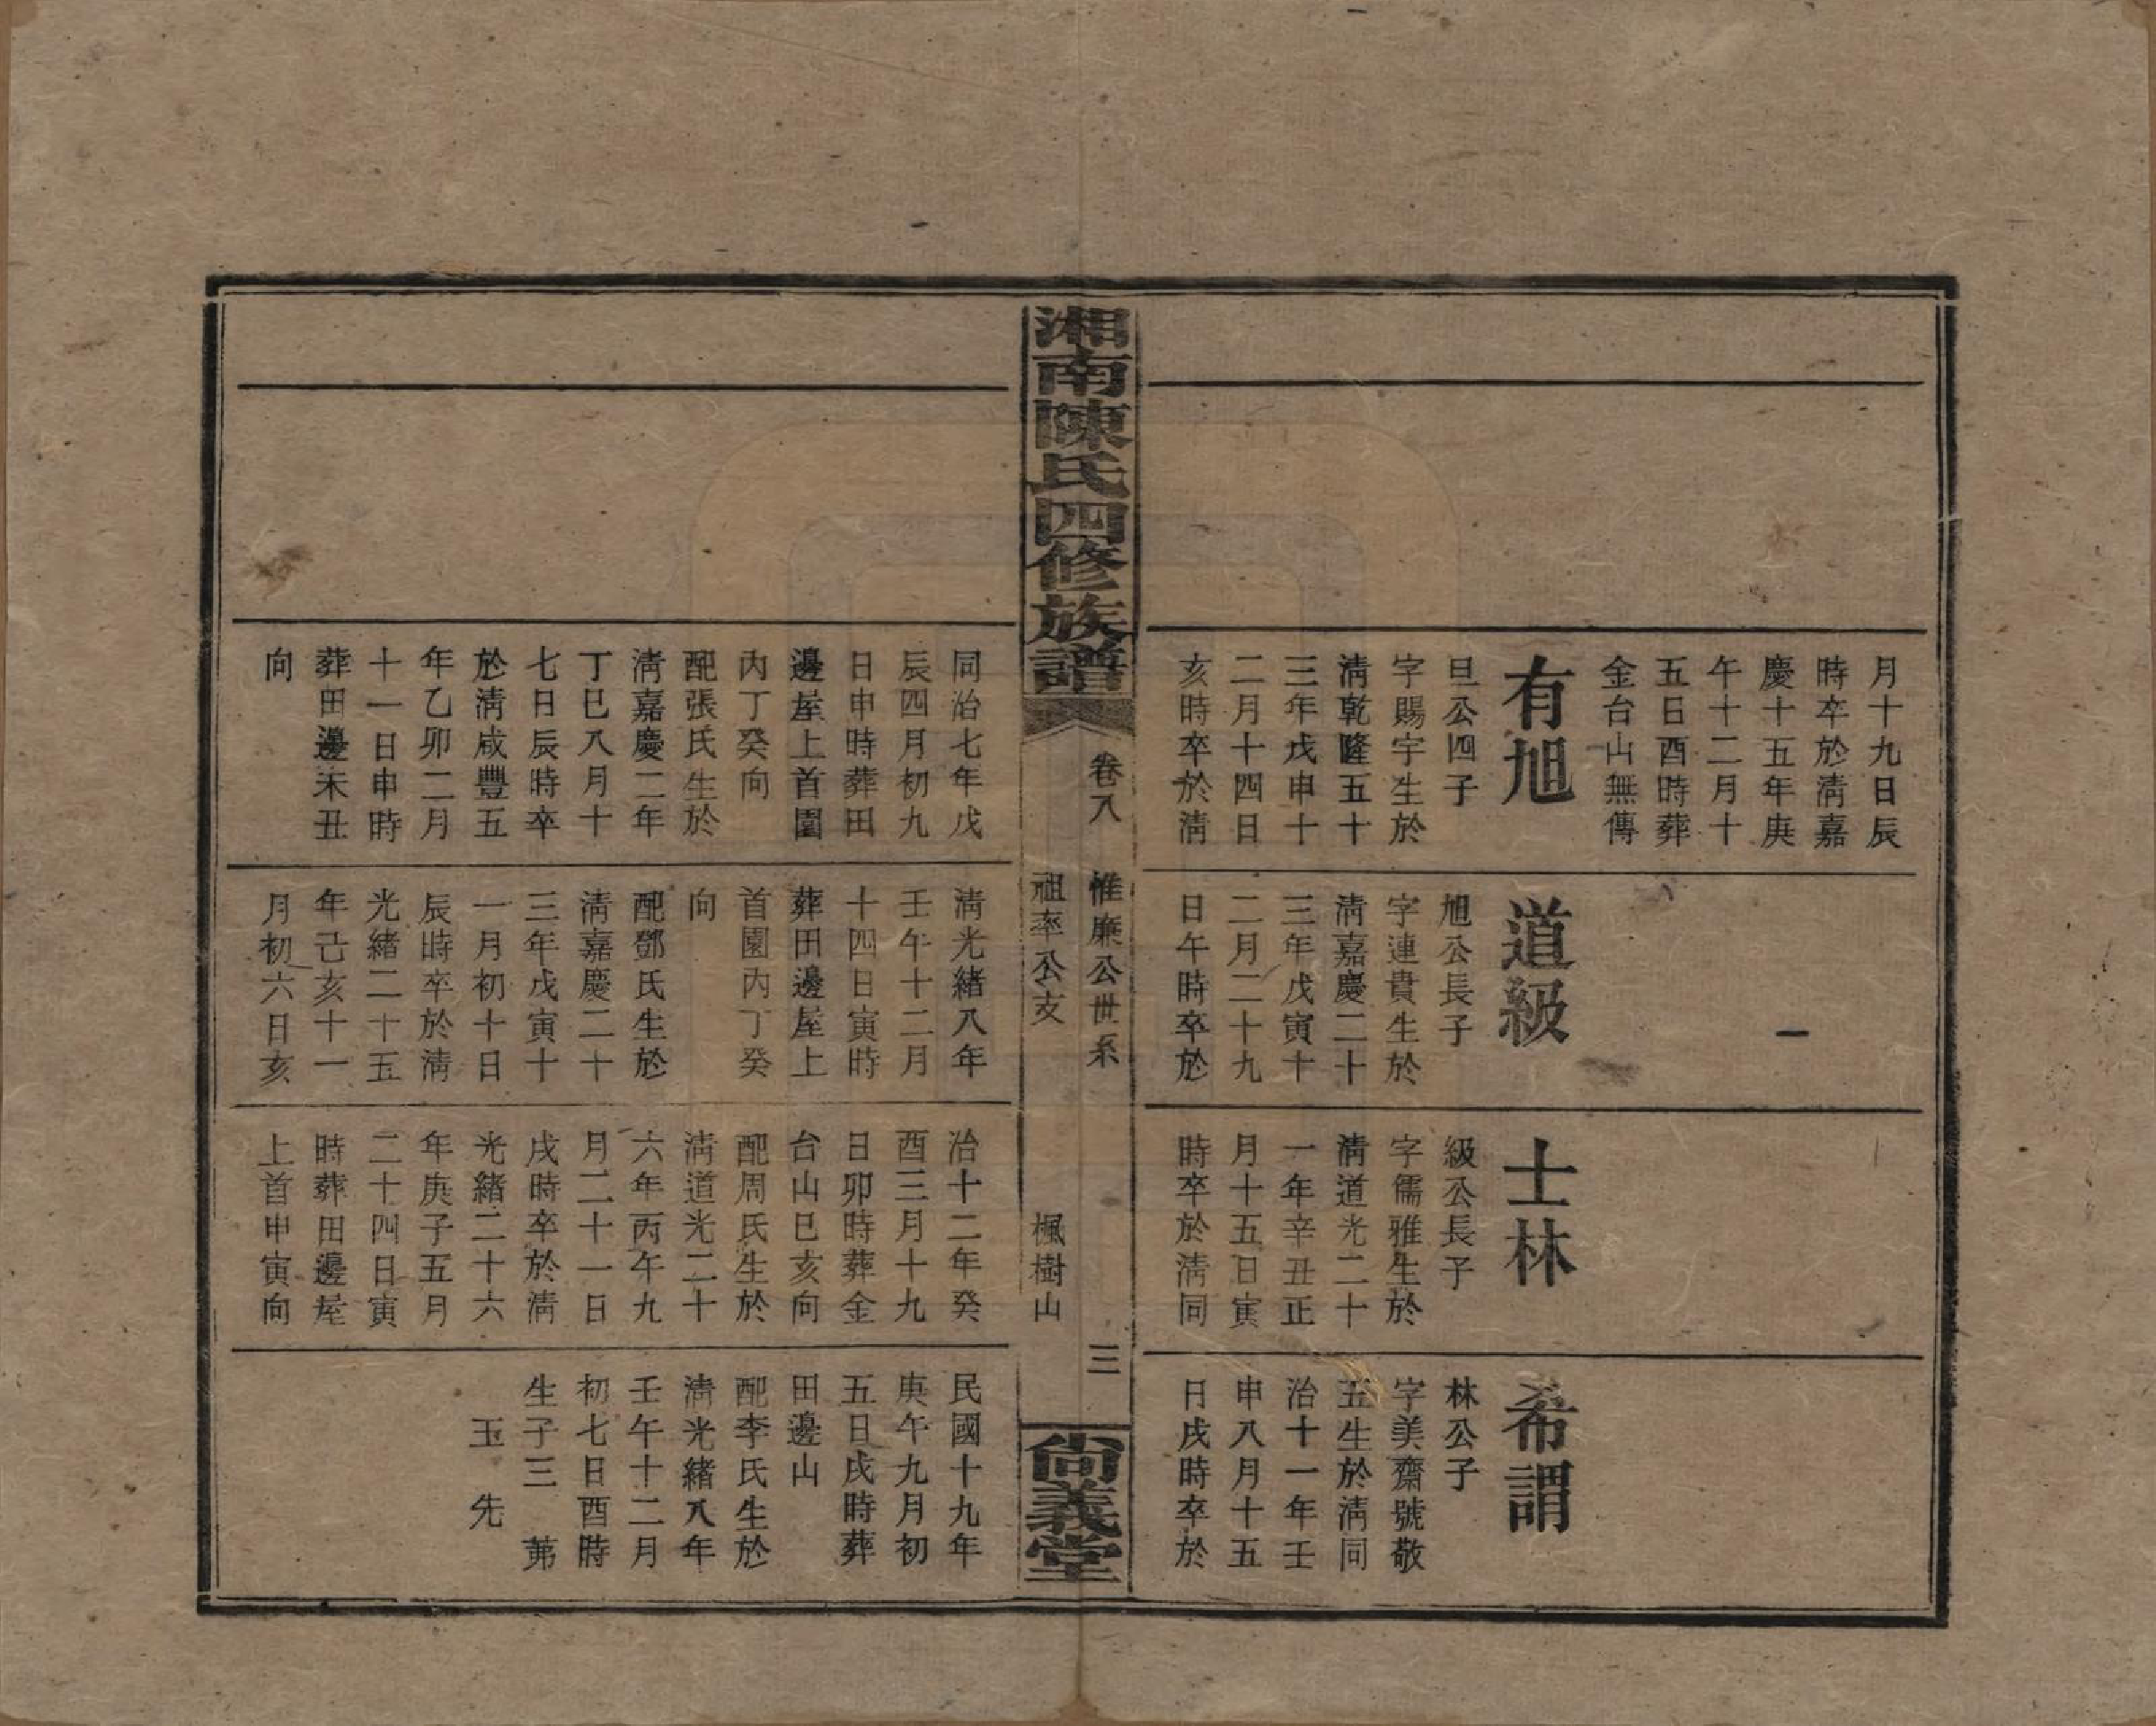 月十九日辰
時卒於淸嘉
慶十五年庚
午十二月十
五日酉時葬
金台山無傳
有旭
旦公四子
字賜宇生於
淸乾隆五十
三年戊申十
二月十四日
亥時卒於淸
道級
旭公長子
字連貴生於
淸嘉慶二十
三年戊寅十
二月二十九
日午時卒於
士林
級公長子
字儒雅生於
淸道光二十
一年辛丑正
月十五日寅
時卒於淸同
希謂
林公子
字美齋號敬
五生於淸同
治十一年壬
申八月十五
日戌時卒於
湘南陳氏四修族譜
卷八
惟廉公世系
祖率公支
楓樹山
三
尙義堂
同治七年戊
辰四月初九
日申時葬田
邊屋上首園
內丁癸向
配張氏生於
淸嘉慶二年
丁巳八月十
七日辰時卒
於淸咸豐五
年乙卯二月
十一日申時
葬田邊未丑
向
淸光緒八年
壬午十二月
十四日寅時
葬田邊屋上
首園內丁癸
向
配鄧氏生於
淸嘉慶二十
三年戊寅十
一月初十日
辰時卒於淸
光緒二十五
年己亥十一
月初六日亥
治十二年癸
酉三月十九
日卯時葬金
台山巳亥向
配周氏生於
淸道光二十
六年丙午九
月二十一日
戌時卒於淸
光緒二十六
年庚子五月
二十四日寅
時葬田邊屋
上首申寅向
民國十九年
庚午九月初
五日戌時葬
田邊山
配李氏生於
淸光緒八年
壬午十二月
初七日酉時
生子三　第
玉　先